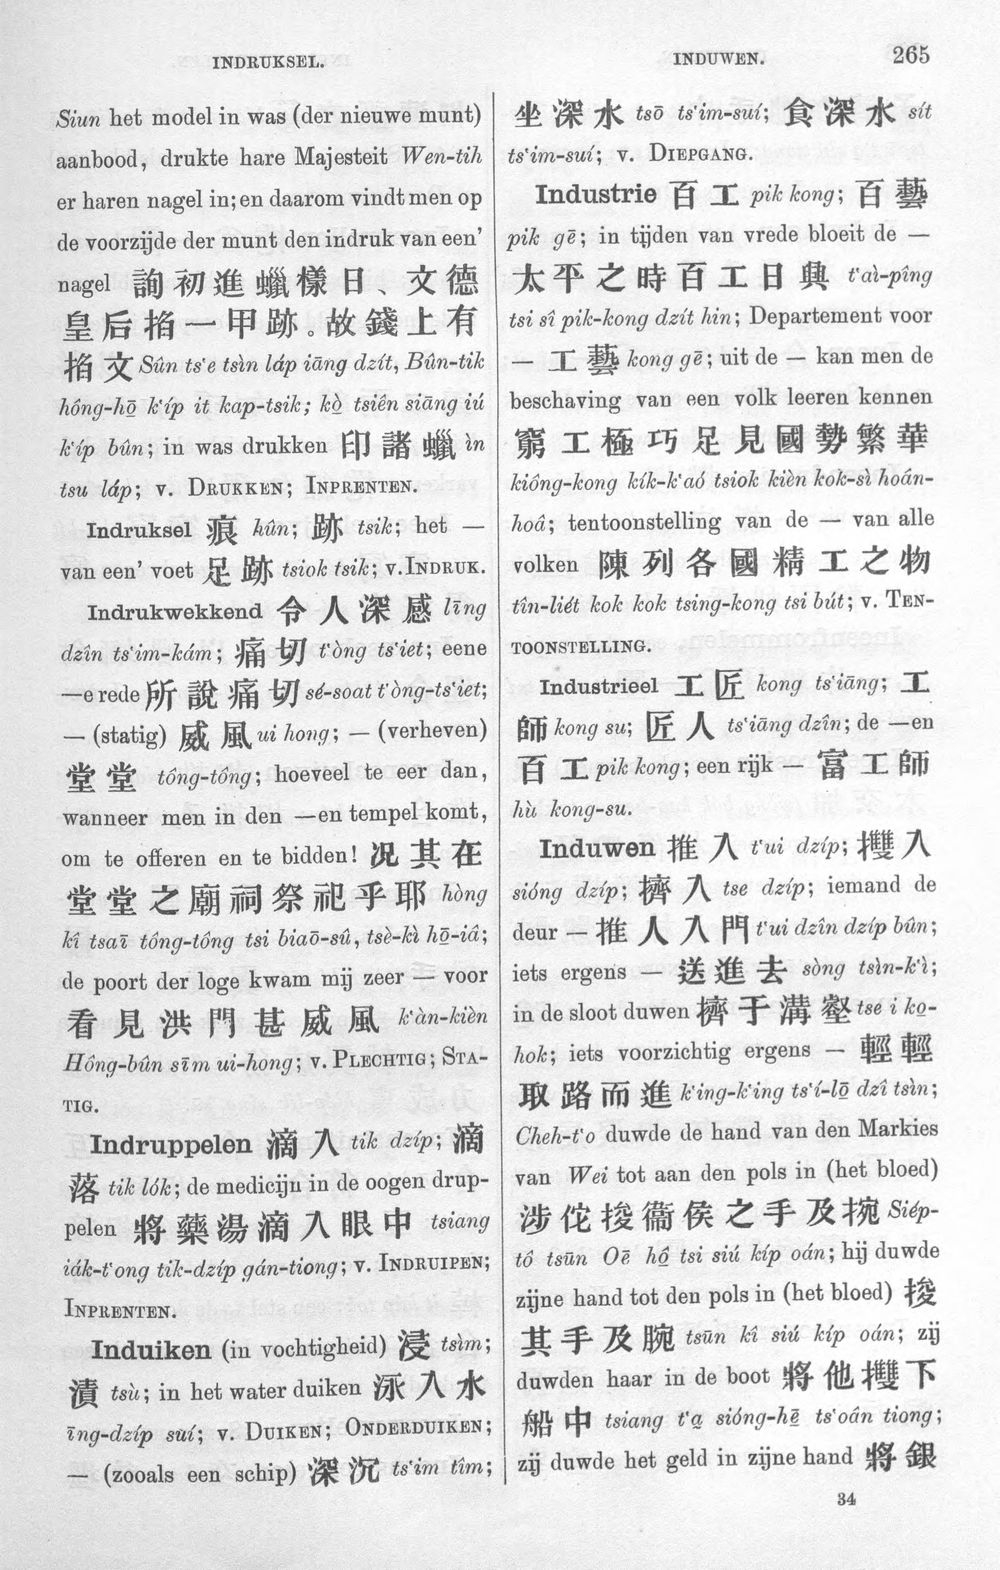 INDRUKSEL.
INDUWEN.
265
Siun het model in was (der nieuwe munt)
aanbood, drukte hare Majesteit Wen-tih
er haren nagel in; en daarom vindt men op
de voorzijde der munt den indruk van een’
nagel 詢初進蠟樣日、文德
皇后掐一甲跡。故錢上有
掐文 Sûn ts‘e tsìn láp iāng dzít, Bûn-tik
hông-hō̤ k‘íp it kap-tsik; kò̤ tsiên siāng iú
k‘íp bûn; in was drukken 印諸蠟 ìn
tsu láp; v. DRUKKEN; INPRENTEN.
Indruksel 痕 hûn; 跡 tsik; het —
van een’ voet 足跡 tsiok tsik; v. INDRUK.
Indrukwekkend 令人深感 līng
dzîn ts‘im-kám; 痛切 t‘òng ts‘iet; eene
—e rede 所說痛切 sé-soat t‘òng-ts‘iet;
— (statig) 威風 ui hong; — (verheven)
堂堂 tông-tông; hoeveel te eer dan,
wanneer men in den —en tempel komt,
om te offeren en te bidden! 况其在
堂堂之廟祠祭祀乎耶 hòng
kî tsaī tông-tông tsi biaō-sû, tsè-kì hō̤-iâ;
de poort der loge kwam mij zeer — voor
看見洪門甚威風 k‘àn-kièn
Hông-bûn sīm ui-hong; v. PLECHTIG; STA-
TIG.
Indruppelen 滴入 tik dzíp; 滴
落 tik lók; de medicijn in de oogen drup-
pelen 將藥湯滴入眼中 tsiang
iák-t‘ong tik-dzíp gán-tiong; v. INDRUIPEN;
INPRENTEN.
Induiken (in vochtigheid) 浸 tsìm;
漬 tsù; in het water duiken 泳入水
īng-dzíp suí; v. DUIKEN; ONDERDUIKEN;
— (zooals een schip) 深沉 ts‘im tîm;
坐深水 tsō ts‘im-suí; 食深水 sít
ts‘im-suí; v. DIEPGANG.
Industrie 百工 pik kong; 百藝
pik gē; in tijden van vrede bloeit de —
太平之時百工日興 t‘aì-pîng
tsi sî pik-kong dzít hin; Departement voor
— 工藝 kong gē; uit de — kan men de
beschaving van een volk leeren kennen
窮工極巧足見國勢繁華
kiông-kong kík-k‘aó tsiok kièn kok-sì hoân-
hoâ; tentoonstelling van de — van alle
volken 陳列各國精工之物
tîn-liét kok kok tsing-kong tsi bút; v. TEN-
TOONSTELLING.
Industrieel 工匠 kong ts‘iāng; 工
師 kong su; 匠人 ts‘iāng dzîn; de —en
百工 pik kong; een rijk — 富工師
hù kong-su.
Induwen 推入 t‘ui dzíp; 㩳入
sióng dzíp; 擠入 tse dzíp; iemand de
deur — 推人入門 t‘ui dzîn dzíp bûn;
iets ergens — 送進去 sòng tsìn-k‘ì;
in de sloot duwen 擠于溝壑 tse i ko̤-
hok; iets voorzichtig ergens — 輕輕
取路而進 k‘ing-k‘ing ts‘í-lō̤ dzî tsìn;
Cheh-t‘o duwde de hand van den Markies
van Wei tot aan den pols in (het bloed)
涉佗捘衞侯之手及捥 Siép-
tô tsūn Oē hô̤ tsi siú kíp oán; hij duwde
zijne hand tot den pols in (het bloed) 捘
其手及腕 tsūn kî siú kíp oán; zij
duwden haar in de boot 將他㩳下
船中 tsiang t‘a̤ sióng-hē̤ ts‘oân tiong;
zij duwde het geld in zijne hand 將銀
34